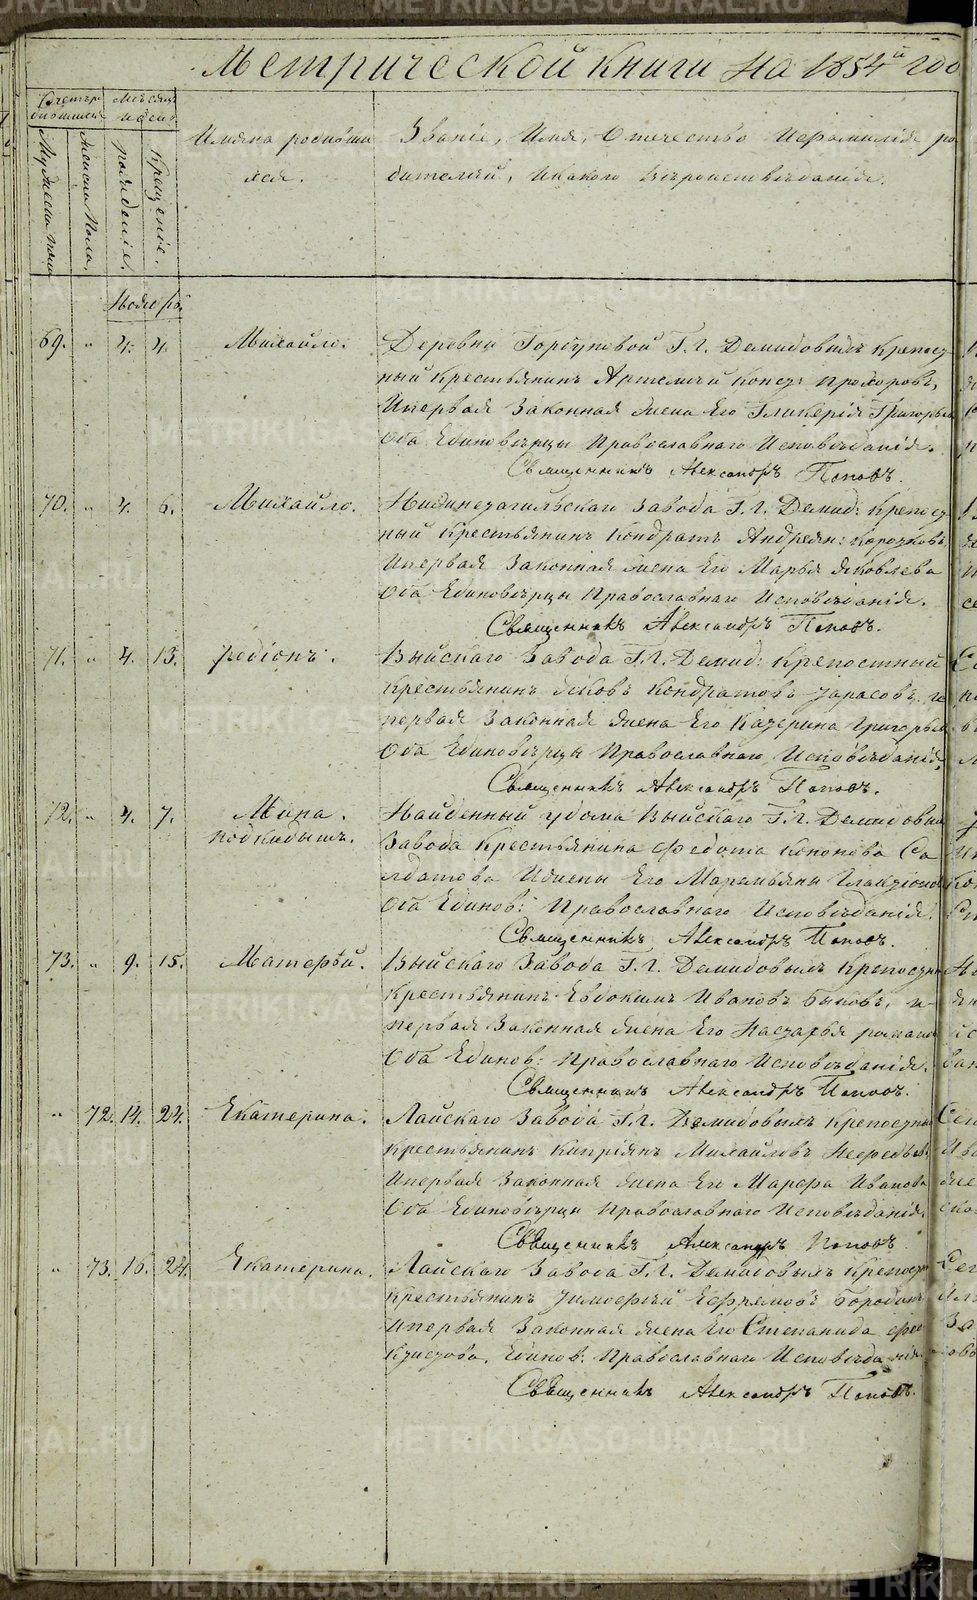 Метрической книги на 1854й год
Счетъ ро
дившихся
Мѣсяцъ
и день
Мужеска пола
Женска пола.
рожденіе.
крещеніе.
Имяна родивши
хся.
Званіе, Имя, Отечество и фамилія ро
дителей, и какого вѣроисповѣданія.
Ноябрь.
69. „ 4. 4. Михайло. Деревни Горбуновой Г. Г. Демидовыхъ крепост
ный крестьянинъ Артемий Прохоровъ,
и первая законная жена его Гликерія Григорьева
Оба Единовѣрцы Православнаго Исповѣданія.
Священникъ Александръ Поповъ.
70. „ 4. 6. Михайло. Нижнетагильскаго завода Г. Г. Демид: крепост
ный крестьянинъ Кондратъ Андреян:
и первая законная жена его Марья Яковлева
Оба Единовѣрцы Православнаго Исповѣданія.
Священникъ Александръ Поповъ.
71. „ 4. 13. Родіонъ. Выйскаго завода Г. Г. Демид: крепостный
крестьянинъ Яковъ Кондратовъ Тарасовъ, и
первая законная жена его Катерина Григорьева
Оба Единовѣрцы Православнаго Исповѣданія,
Священникъ Александръ Поповъ.
72. „ 4. 7. Мина. Найденный у дома Выйскаго Г. Г. Демидовыхъ
подкидышъ. завода крестьянина Федота Кононова Са
лдатова и жены его Маремьяны
Оба Единов: Православнаго Исповѣданія.
Священникъ Александръ Поповъ.
73. „ 9. 15. Матфѣй. Выйскаго завода Г. Г. Демидовыхъ крепостный
крестьянинъ Евдокимъ Ивановъ Быковъ, и
первая законная жена его Настасья
Оба Единов: Православнаго Исповѣданія.
Священникъ Александръ Поповъ.
„ 72. 14. 24. Екатерина. Лайскаго завода Г. Г. Демидовыхъ крепостный
крестьянинъ Кипріянъ Михайловъ
и первая законная жена его Марфа Иванова
Оба Единовѣрцы Православнаго Исповѣданія.
Священникъ Александръ Поповъ
„ 73. 16. 24. Екатерина. Лайскаго завода Г. Г. Демидовыхъ крепостн
крестьянинъ Тимофѣй Ефремовъ Бородинъ
и первая законная жена его Степанида
Единов: Православнаго Исповѣданія
Священникъ Александръ Поповъ.
METRIKI.GASO-URAL.RU